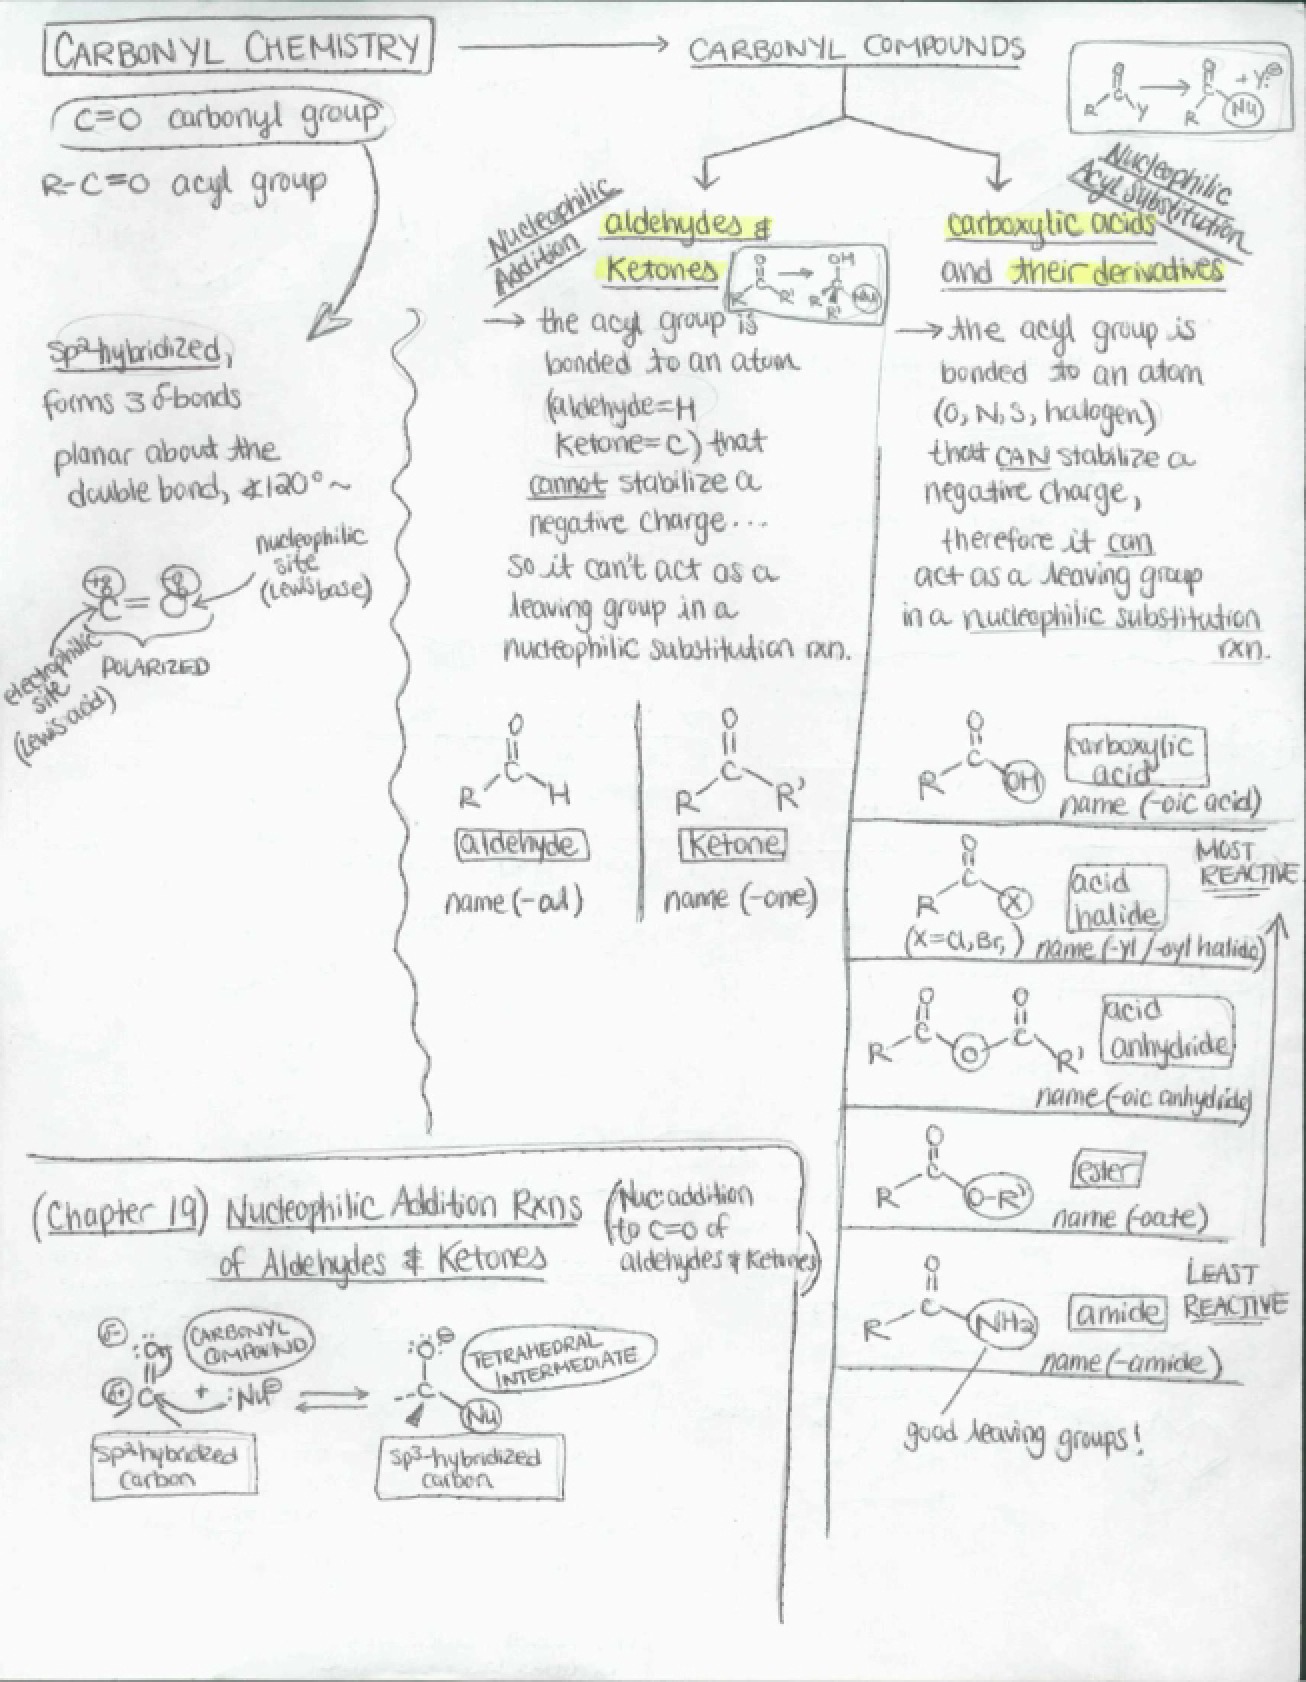 CARBONYL CHEMISTRY
C=O carbonyl group
R-C=O acyl group
sp²-hybridized,
forms 3 σ-bonds
planar about the
double bond, ∢120°~
nucleophilic
site
(Lewis base)
+δ -δ
C = O
electrophilic
site
(Lewis acid)
POLARIZED
CARBONYL COMPOUNDS
Nucleophilic
Addition
aldehydes &
Ketones
O
C
R R'
OH
C
R R' Nu
→ the acyl group is
bonded to an atom
(aldehyde=H
Ketone=C) that
cannot stabilize a
negative charge...
so it can't act as a
leaving group in a
nucleophilic substitution rxn.
O
C
R H
aldehyde
name (-al)
O
C
R R'
Ketone
name (-one)
O
C
R Y
O
C
R Nu
+ Y:⊖
Nucleophilic
Acyl Substitution
carboxylic acids
and their derivatives
→ the acyl group is
bonded to an atom
(O, N, S, halogen)
that CAN stabilize a
negative charge,
therefore it can
act as a leaving group
in a nucleophilic substitution
rxn.
O
C
R OH
carboxylic
acid
name (-oic acid)
MOST
REACTIVE
O
C
R X
(X=Cl,Br, )
acid
halide
name (-yl/-oyl halide)
O O
C C
R O R'
acid
anhydride
name (-oic anhydride)
O
C
R O-R'
ester
name (-oate)
LEAST
REACTIVE
O
C
R NH2
amide
name (-amide)
good leaving groups!
(Chapter 19) Nucleophilic Addition Rxns
of Aldehydes & Ketones
(Nuc: addition
to C=O of
aldehydes & Ketones)
δ-
:O:
δ+ C + :Nu⊖
CARBONYL
COMPOUND
sp²hybridized
carbon
:O:⊖
C
Nu
TETRAHEDRAL
INTERMEDIATE
sp³-hybridized
carbon